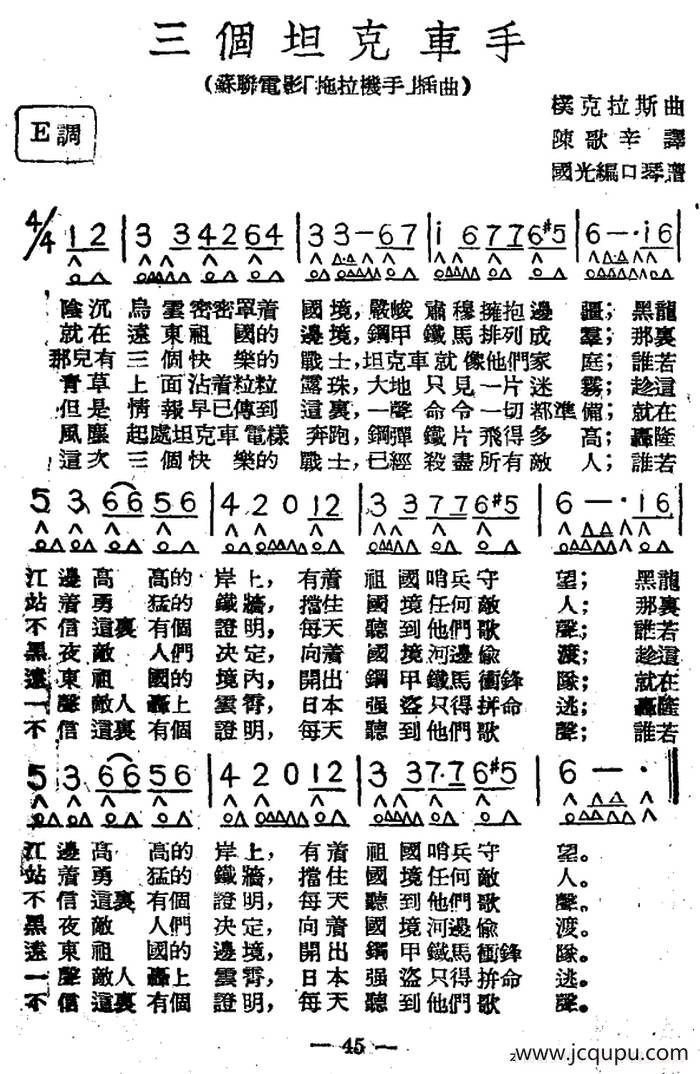 三個坦克車手
(蘇聯電影「拖拉機手」插曲)
E調
樸克拉斯曲
陳歌辛譯
國光編口琴譜
4/4 12 | 3 3 42 64 | 33－67 | i 6 77 6#5 | 6－·i6
陰沉烏雲密密罩着國境,嚴峻肅穆擁抱邊疆;黑龍
就在遠東祖國的邊境,鋼甲鐵馬排列成羣;那裏
那兒有三個快樂的戰士,坦克車就像他們家庭;誰若
青草上面沾着粒粒露珠,大地只見一片迷霧;趁這
但是情報早已傳到這裏,一聲命令一切都準備;就在
風塵起處坦克車電樣奔跑,鋼彈鐵片飛得多高;轟隆
這次三個快樂的戰士,已經殺盡所有敵人;誰若
5 3 66 56 | 42012 | 3 3 77 6#5 | 6－·i6
江邊高高的岸上,有着祖國哨兵守望;黑龍
站着勇猛的鐵牆,擋住國境任何敵人;那裏
不信這裏有個證明,每天聽到他們歌聲;誰若
黑夜敵人們决定,向着國境河邊偷渡;趁這
遠東祖國的境內,開出鋼甲鐵馬衝鋒隊;就在
一聲敵人轟上雲霄,日本强盜只得拼命逃;轟隆
不信這裏有個證明,每天聽到他們歌聲;誰若
5 3 66 56 | 42012 | 3 3 7·7 6#5 | 6－·
江邊高高的岸上,有着祖國哨兵守望。
站着勇猛的鐵牆,擋住國境任何敵人。
不信這裏有個證明,每天聽到他們歌聲。
黑夜敵人們决定,向着國境河邊偷渡。
遠東祖國的邊境,開出鋼甲鐵馬衝鋒隊。
一聲敵人轟上雲霄,日本强盜只得拼命逃。
不信這裏有個證明,每天聽到他們歌聲。
— 45 —
www.jcqupu.com